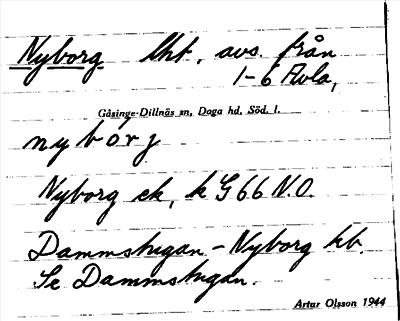 Nyborg lht, avs. från
1-6 Avla,
Gåsinge-Dillnäs sn, Daga hd, Söd. l.
nybórj
Nyborg ek, k G 66 N.O.
Dammstugan - Nyborg hb.
Se Dammstugan.
Artur Olsson 1944